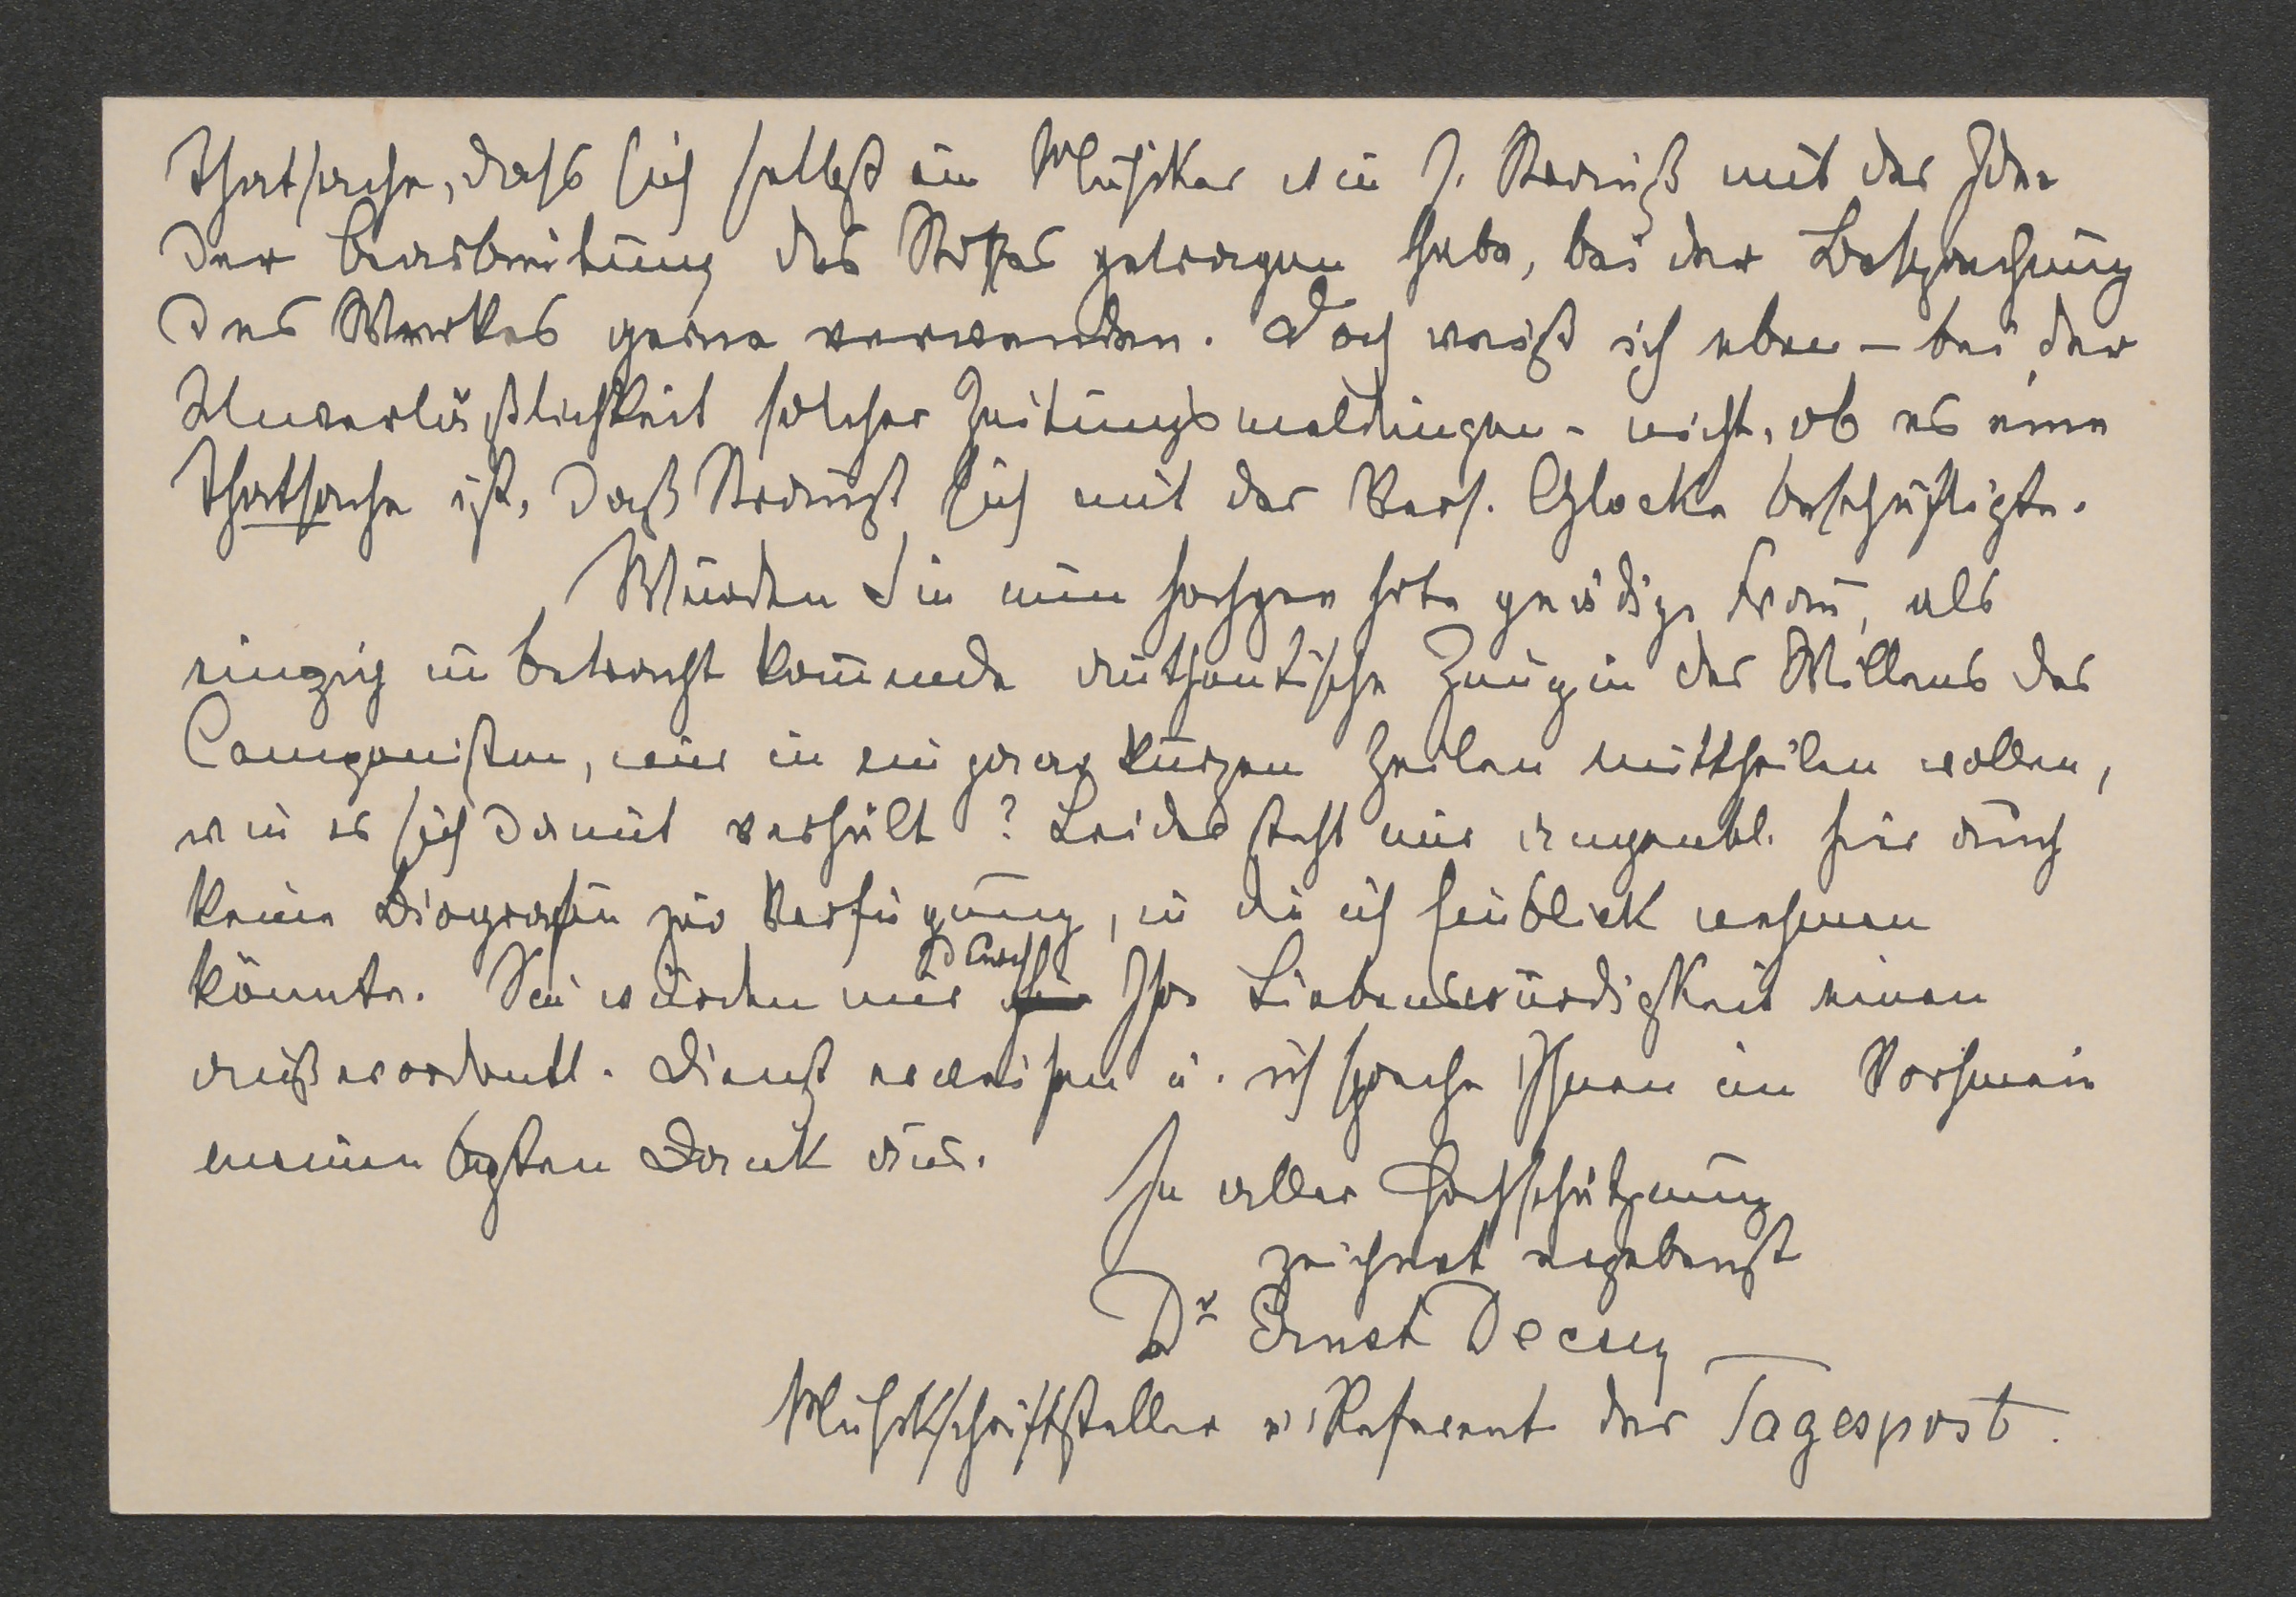 Thatsache, dass sich selbst ein Musiker wie J. Strauß mit der Idee
der Bearbeitung des Stoffes getragen habe, bei der Besprechung
des Werkes gerne verwenden. Doch weiß ich eben – bei der
Unverläßlichkeit solcher Zeitungsmeldungen – nicht, ob es eine
Thatsache ist, daß Strauß sich mit der Vers. Glocke beschäftigte.
Würden Sie nun hochgeehrte gnädige Frau, als
einzig in Betracht kommende authentische Zeugin des Willens des
Componisten, mir in ein paar kurzen Zeilen mittheilen wollen,
wie es sich damit verhält? Leider steht mir augenbl. hier auch
keine Biografie zur Verfügung, in die ich Einblick nehmen
könnte. Sie würden mir durch Ihre Liebenswürdigkeit einen
außerordentl. Dienst erweisen u. ich spreche Ihnen im Vorhinein
meinen besten Dank aus.
In aller Hochschätzung
zeichnet ergebenst
Dr Ernst Decsey
Musikschriftsteller u. Referent der Tagespost.